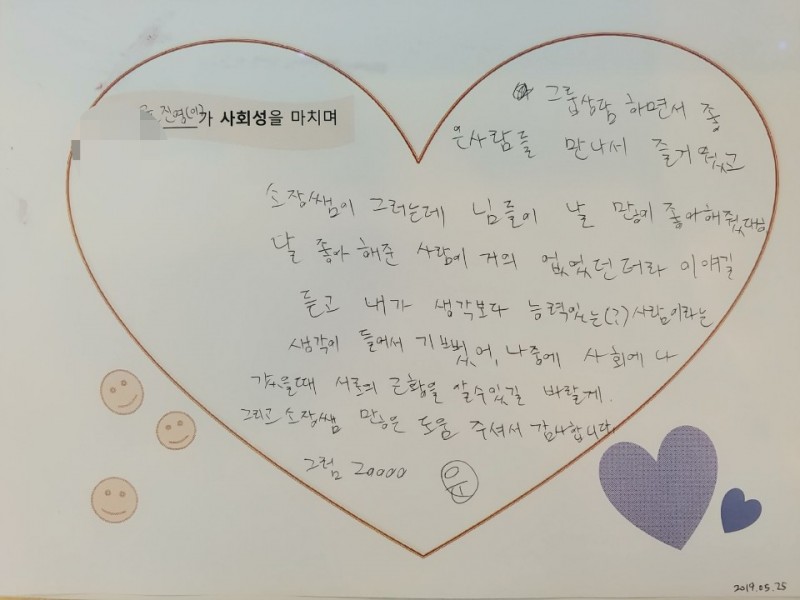 진영(이)가 사회성을 마치며
그룹상담 하면서 좋
은사람들 만나서 즐거웠고
소장쌤이 그러는데 님들이 날 많이 좋아해줬대.
날 좋아 해준 사람이 거의 없었던터라 이야길
듣고 내가 생각보다 능력있는(?)사람이라는
생각이 들어서 기뻤어, 나중에 사회에 나
갔을때 서로의 근황을 알수있길 바랄게.
그리고 소장쌤 많은 도움 주셔서 감사합니다.
그럼 20000
윤
2019.05.25